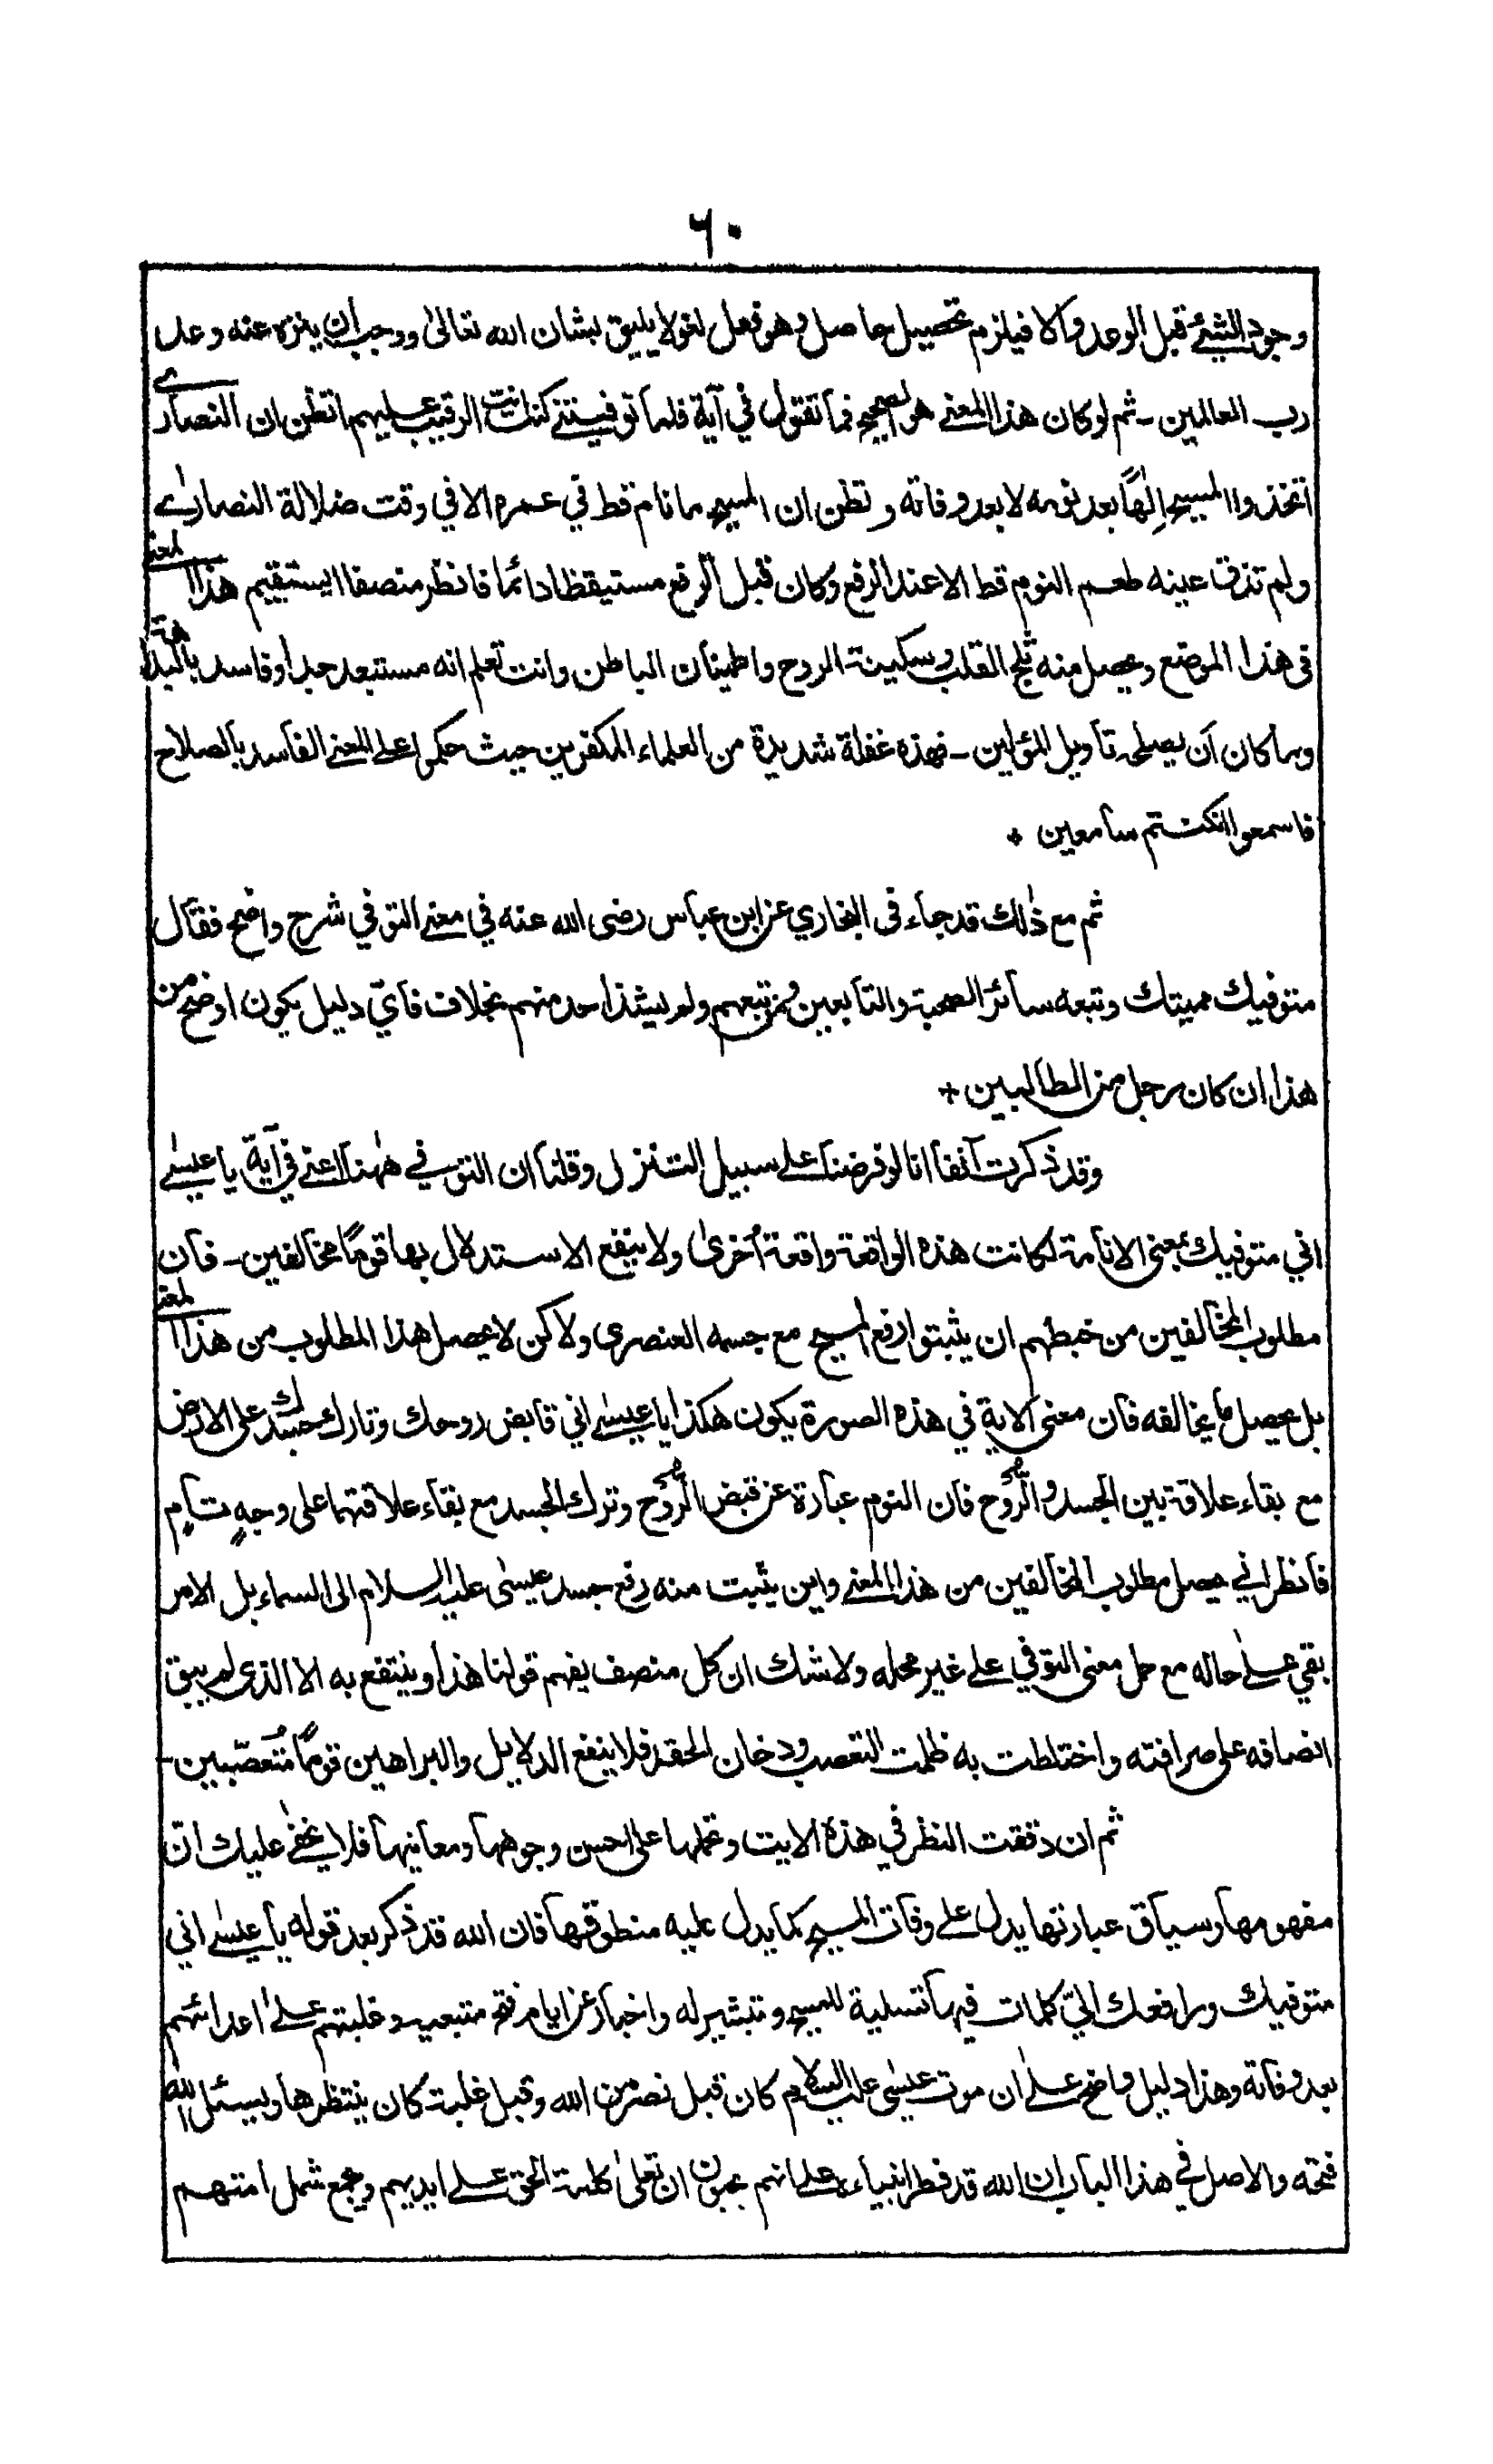 ٦٠
وجود الشئے قبل الوعد والا فيلزم تحصيل حاصل وهو فعل لغو لا يليق بشان الله تعالىٰ ووجب ان ينزه عنه وعد
رب العالمين ـ ثم لو كان هذا المعنے هو الصحيح فما تقول في آية فلما توفيتنے كنت انت الرقيب عليهم اتظن ان النصارے
اتخذوا المسيح اِلٰهًا بعد نومه لا بعد وفاته وتظن ان المسيح ما نام قط في عمره الا في وقت ضلالة النصارٰے
ولم تذق عينه طعم النوم قط الا عند الرفع وكان قبل الرفع مستيقظا دائما فانظر منصفا ايستقيم هذا المعنے
فى هذا الموضع ويحصل منه ثلج القلب وسكينة الروح واطمينان الباطن وانت تعلم انه مستبعد جدا وفاسد بالبداهة
وما كان ان يصلح تأويل المؤلين ـ فهذه غفلة شديدة من العلماء المكفرين حيث حكموا على المعنے الفاسد بالصلاح
فاسمعوا انكنتم سامعين +
ثم مع ذٰلك قد جاء فى البخاري عن ابن عباس رضى الله عنه في معنے التوفي شرح واضح فقال
متوفيك مميتك وتبعه سائر الصحبة والتابعين ومن تبعهم ولم يشذ احد منهم بخلاف فأيّ دليل يكون اوضح من
هذا ان كان رجل من الطالبين +
وقد ذكرت آنفا انا لو فرضنا علے سبيل التنزل وقلنا ان التوفے هٰهنا اعنے في آية يا عيسٰے
اني متوفيك بمعنى الانامة لكانت هذه الواقعة واقعة اُخرىٰ ولا ينفع الاستدلال بها قومًا مخالفين ـ فان
مطلوب المخالفين من خبطهم ان يثبتوا رفع المسيح مع جسمه العنصرى ولاكن لا يحصل هذا المطلوب من هذا المعنے
بل يحصل ما يخالفه فان معنى الاية في هذه الصورة يكون هكذا يا عيسٰے اني قابض روحك وتارك جسدك على الارض
مع بقاء علاقة بين الجسد والرُّوح فان النوم عبارة عن قبض الرُّوح وترك الجسد مع بقاء علاقتهما على وجهٍ تام
فانظر انے يحصل مطلوب المخالفين من هذا المعنے واين يثبت منه رفع جسد عيسٰى عليه السلام الى السماء بل الامر
بقي علےٰ حاله مع حمل معنى التوفي علے غير محله ولا شك ان كل منصف يفهم قولنا هذا وينتفع به الا الذى لم يبق
انصافه على صرافته واختلطت به ظلمت التعصب ودخان الحقد فلا ينفع الدلايل والبراهين قومًا مُتعصّبين ـ
ثم ان دققت النظر في هذه الايت وتحملها على احسن وجوهها ومعانيها فلا يخفےٰ عليك انّ
مفهومها وسياق عبارتها يدل علے وفات المسيح كما يدل عليه منطوقها فان الله قد ذكر بعد قوله يا عيسٰے اني
متوفيك ورافعك اليّ كلمات فيها تسلية للمسيح وتبشير له واخبار عن ايام فتح متبعيه وغلبتهم علےٰ اعدائهم
بعد وفاته وهذا دليل واضح علےٰ ان موت عيسٰى عليه السلام كان قبل نصر من الله وقبل غلبة كان ينتظرها ويسئل الله
فتحه والاصل في هذا الباب ان الله قد فطر انبياءه علے انهم يحبون ان تعلىٰ كلمة الحق علے ايديهم ويجمع شمل امتهم